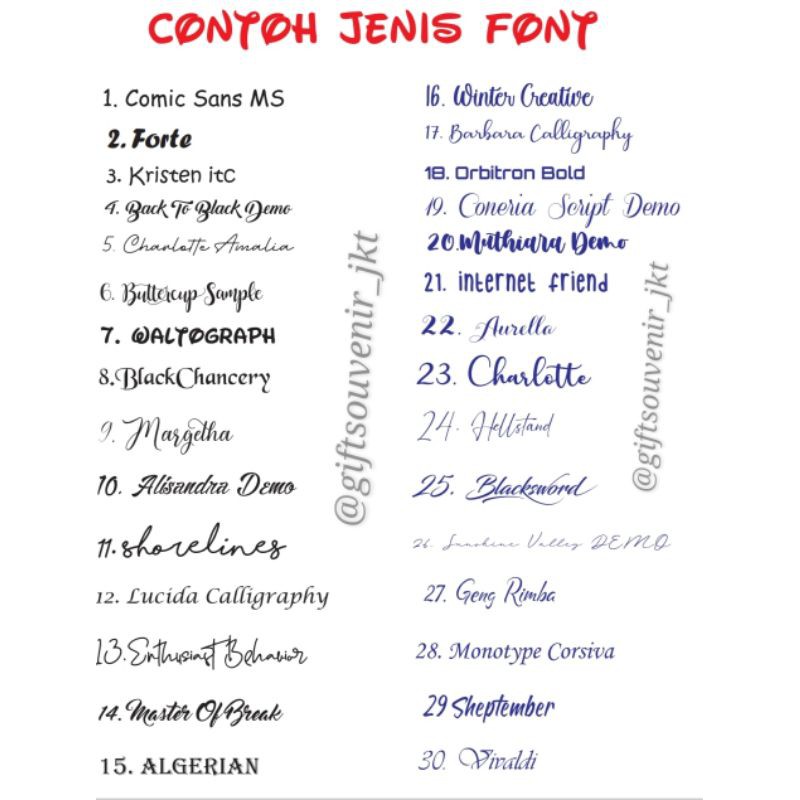 CONTOH JENIS FONT
1. Comic Sans MS
2. Forte
3. Kristen itc
4. Back To Black Demo
5. Charlotte Amalia
6. Buttercup Sample
7. WALTOGRAPH
8.BlackChancery
9. Margetha
10. Alisandra Demo
11. shorelines
12. Lucida Calligraphy
13. Enthusiast Behavior
14. Master Of Break
15. ALGERIAN
16. Winter Creative
17. Barbara Calligraphy
18. Orbitron Bold
19. Coneria Script Demo
20.Muthiara Demo
21. internet friend
22. Aurella
23. Charlotte
24. Hellstand
25. Blacksword
26. Sunshine Valley DEMO
27. Geng Rimba
28. Monotype Corsiva
29 Sheptember
30. Vivaldi
@giftsouvenir_jkt
@giftsouvenir_jkt